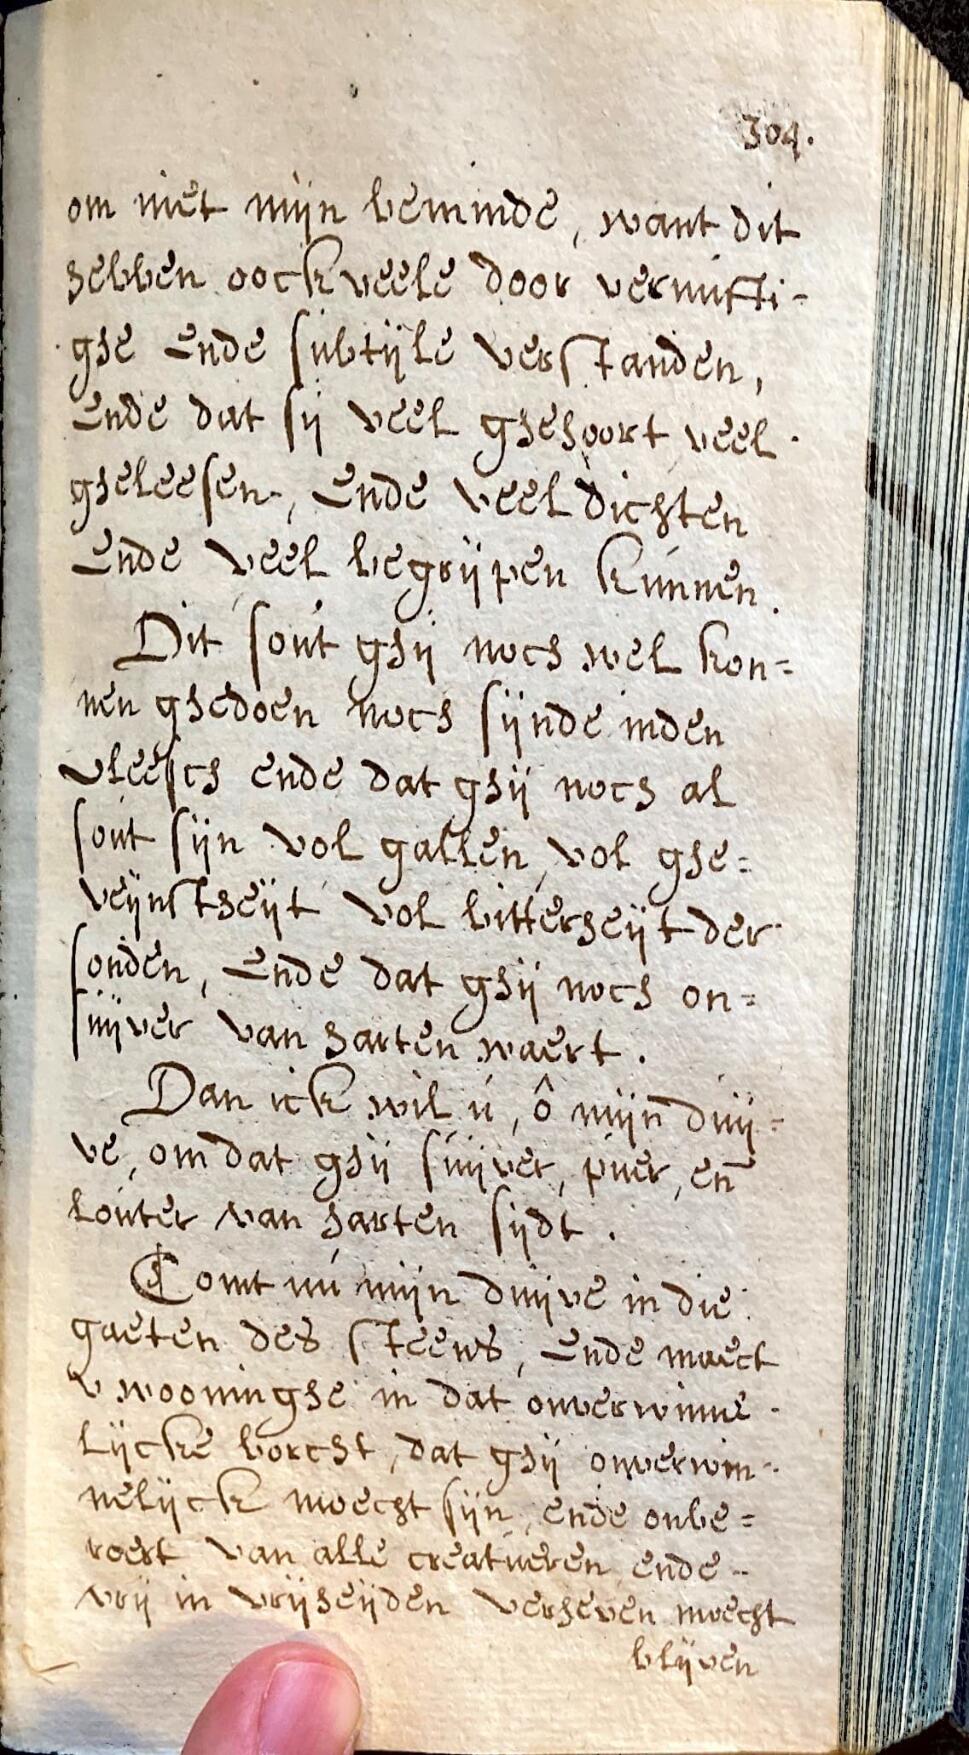 304.
om niet mijn beminde, want dit
hebben oock veele door vernufti-
ghe ende subtijle verstanden,
ende dat sij veel ghehoort veel
gheleesen, ende veel dichten
ende veel begrijpen kúnnen.
Dit soút ghij noch wel kon=
nen ghedoen noch sijnde inden
vleesch ende dat ghij noch al
soút sijn vol gallen, vol ghe=
veijnstheijt vol bitterheijt der
sonden, ende dat ghij noch on=
súijver van harten waert.
Dan ick wil ú, ô mijn dúij=
ve, om dat ghij súijver, púer, en̄
loúter van harten sijdt.
Comt nú mijn dúijve in die
gaeten des steens, ende maect
v wooninghe in dat onverwinne-
lijcke borcht, dat ghij onverwin-
nelijck moecht sijn, ende onbe=
roert van alle creatúeren ende
vrij in vrijheijden verheven moecht
blijven